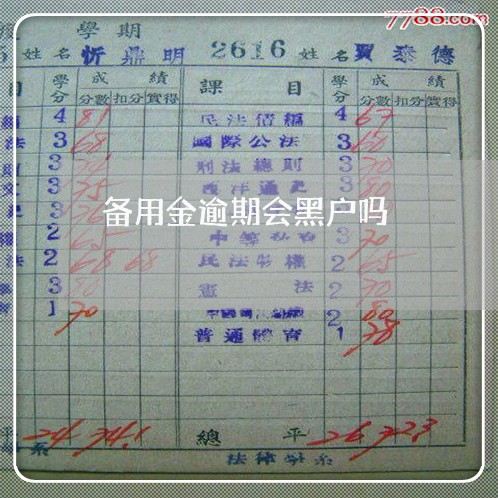 7788.com
學期
姓名 忻鼎明 2616 姓名 賈泰德
目 學分 成績 課目 學分 成績
分數 扣分 實得 分數 扣分 實得
4 81 民法債編 4 67
法 3 68 國際公法 3 60
3 刑法總則 3 70
3 75 西洋通史 3 80
備用金逾期會黑戶嗎
2 65 3 70
法 2 68 68 民法物權 2 65
3 80 憲法 2 70
1 70 2 80
普通體育 1 78
平 24 74.1 總平 26 72.3
系 法律學系